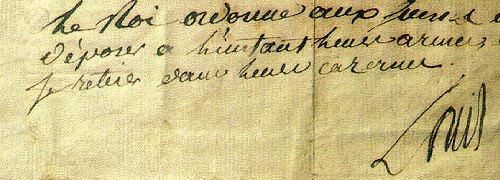 Le Roi ordonne aux Suisses
déposer à l'instant leurs armes,
se retirer dans leurs casernes.
Louis